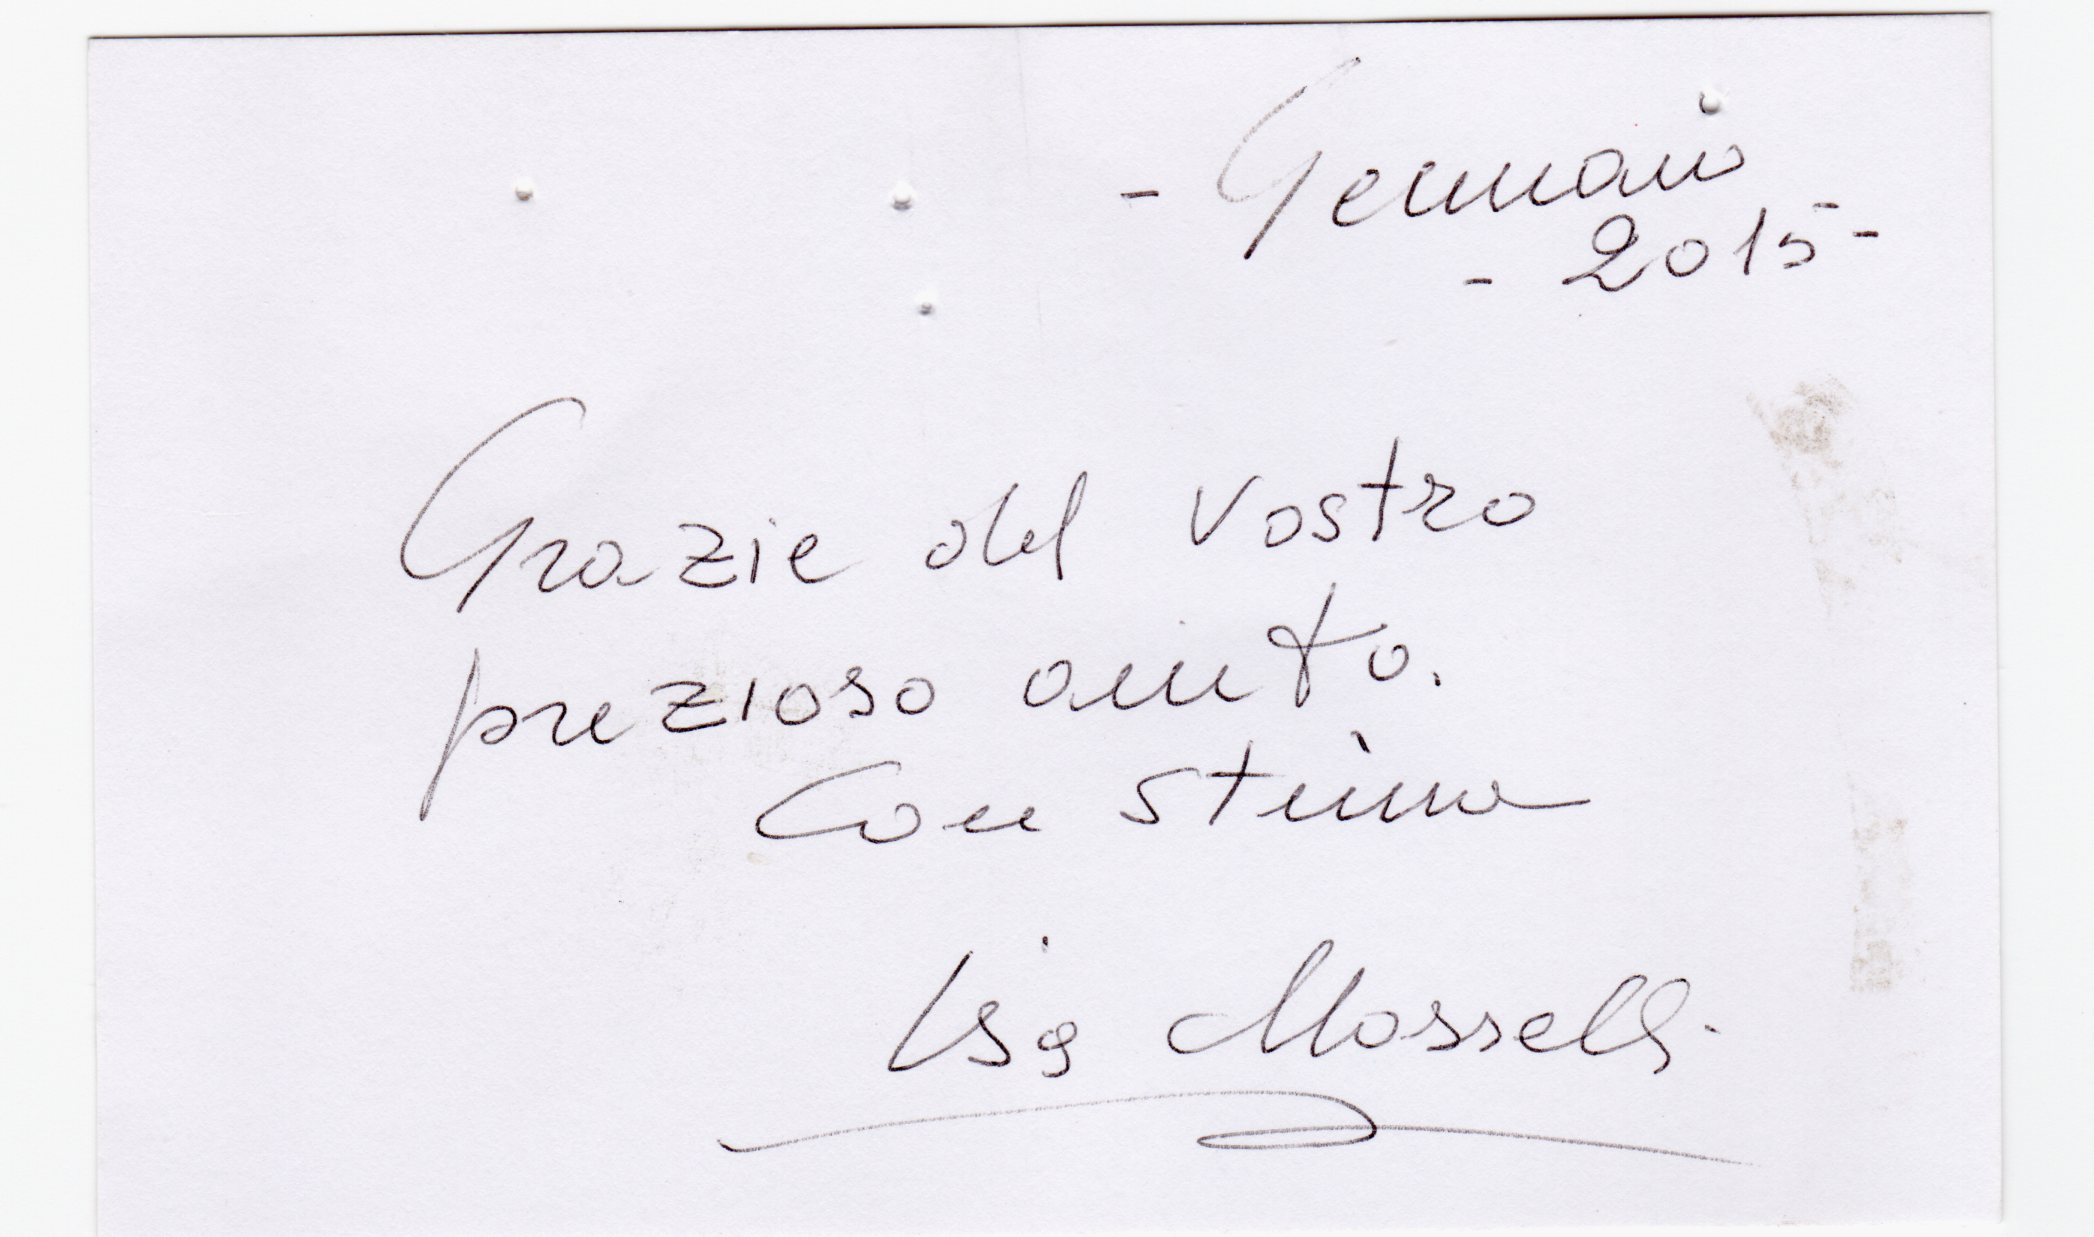 - Gennaio
- 2015 -
Grazie del vostro
prezioso aiuto.
Con stima
Mosselli